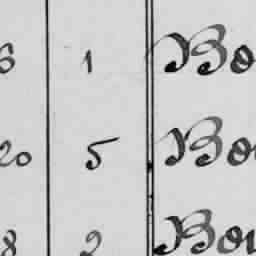 6 1 Bo
20 5 Bo
8 2 Bou